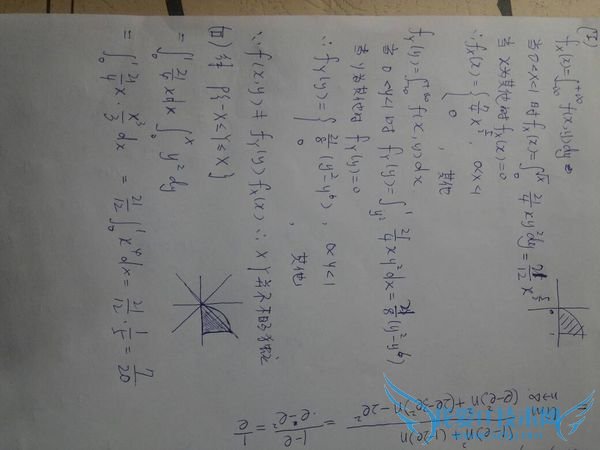 (2)
f_X(x)=∫_{-∞}^{+∞} f(x,y)dy
当0<x<1时 f_X(x)=∫_0^{√x} 21/4 xy²dy=21/12 x^{5/2}
当x为其他时 f_X(x)=0
∴f_X(x)={21/12 x^{5/2}, 0<x<1
0, 其他
f_Y(y)=∫_{-∞}^{+∞} f(x,y)dx
当0<y<1时 f_Y(y)=∫_{y²}^1 21/4 xy²dx=21/8(y²-y⁶)
当y为其他时 f_Y(y)=0
∴f_Y(y)={21/8(y²-y⁶), 0<y<1
0, 其他
∵f(x,y)≠f_Y(y)f_X(x) ∴X Y并不相互独立
P{-X≤Y≤X}
=∫_0^1 21/4 xdx ∫_0^x y²dy
=∫_0^1 21/4 x·x³/3 dx = 21/12∫_0^1 x⁴dx = 21/12·1/5 = 7/20
= lim_{n→∞} (1-e)n²+(1-2e)n / (e-e²)n²+(2e-3e²)n-2e² = 1-e/e-e² = 1/e